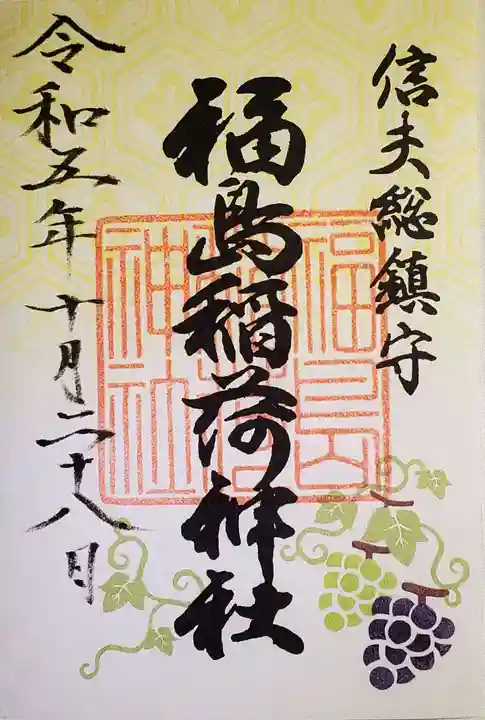 信夫総鎮守
福島稲荷神社
福島稲荷神社
令和五年十月二十八日